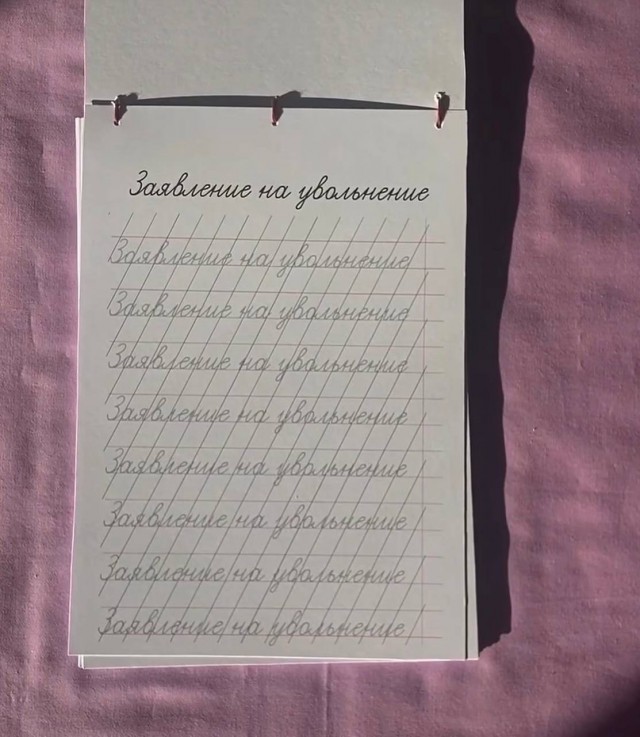 Заявление на увольнение
Заявление на увольнение
Заявление на увольнение
Заявление на увольнение
Заявление на увольнение
Заявление на увольнение
Заявление на увольнение
Заявление на увольнение
Заявление на увольнение